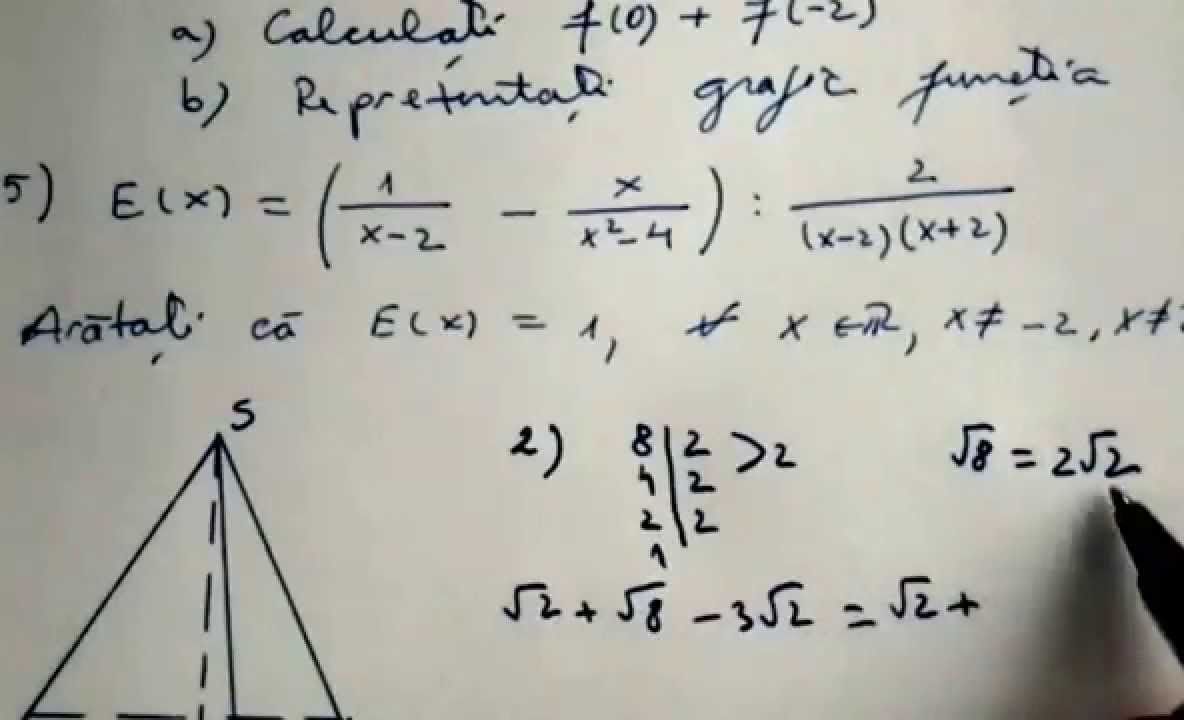 a) Calculați f(0) + f(-2)
b) Reprezentați grafic funcția
5) E(x) = (1/(x-2) - x/(x²-4)) : 2/((x-2)(x+2))
Arătați că E(x) = 1, ∀ x ∈ ℝ, x ≠ -2, x ≠
S
2) 8 | 2 > 2 √8 = 2√2
4 | 2
2 | 2
1
√2 + √8 - 3√2 = √2 +